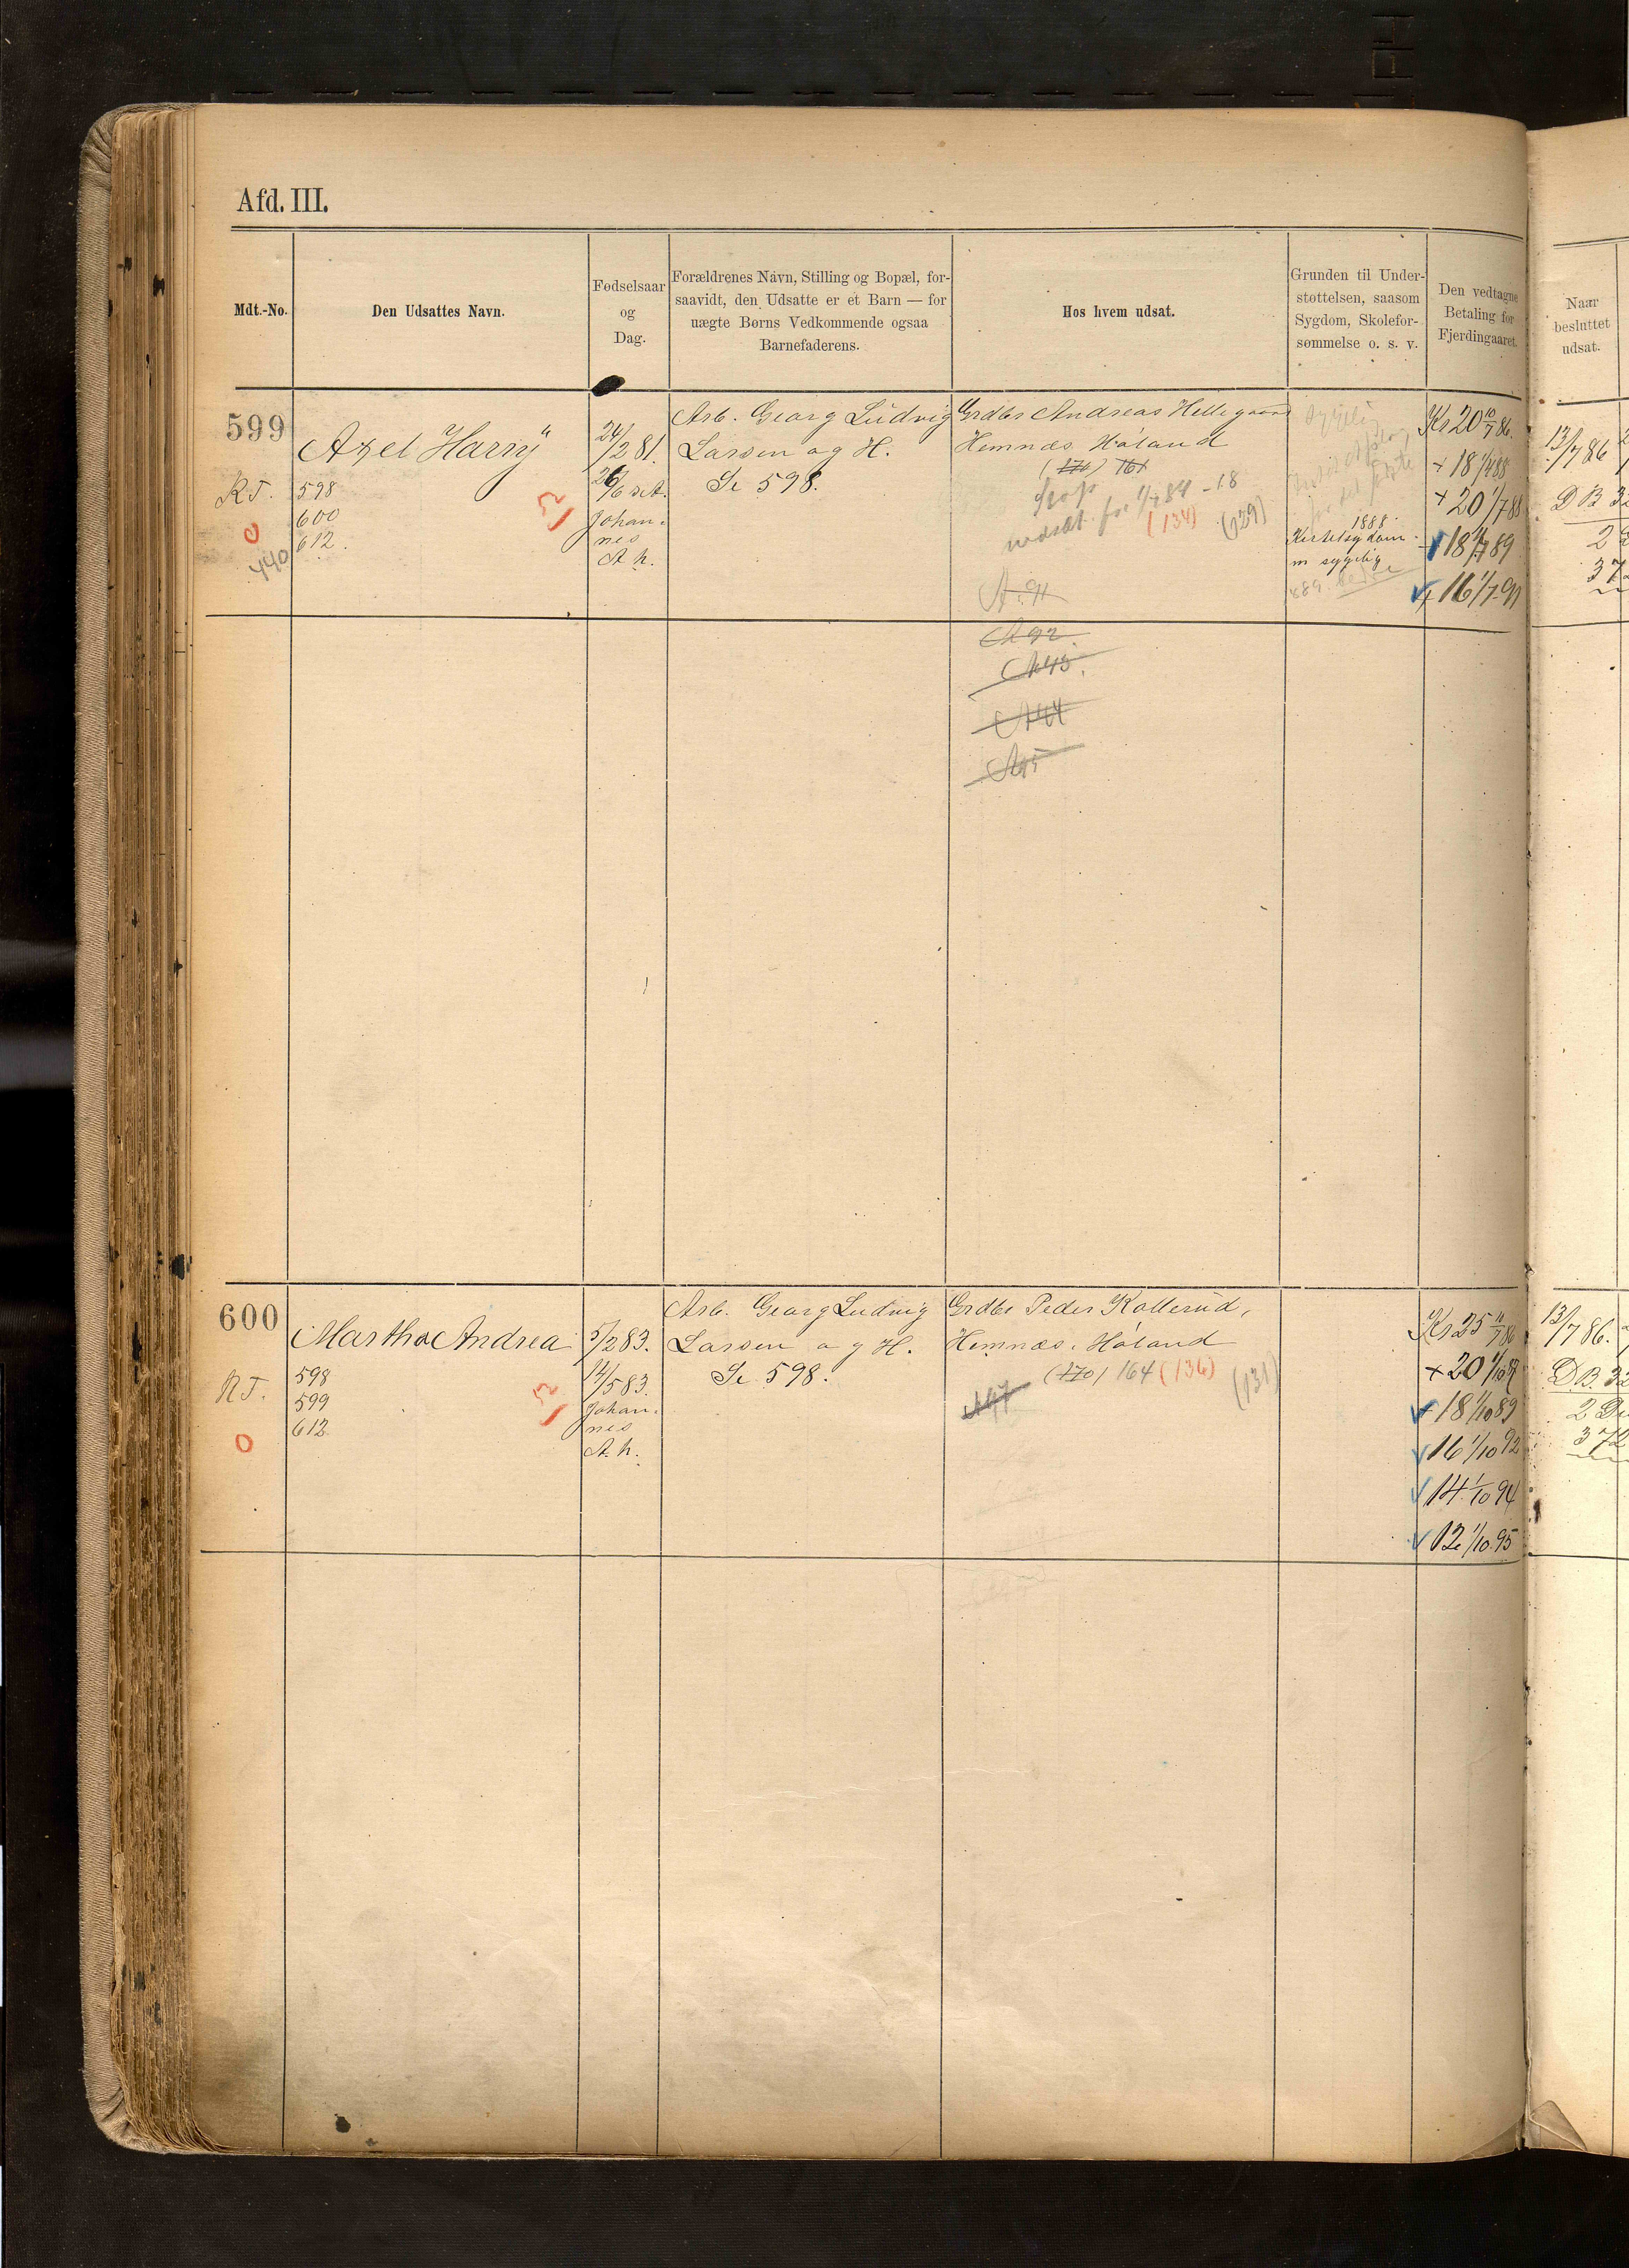 Afd. III.
Mdt.-No.
Den Udsattes Navn.
Fødselsaar
og
Dag.
Forældrenes Navn, Stilling og Bopæl, for-
saavidt, den Udsatte er et Barn — for
uægte Børns Vedkommende ogsaa
Barnefaderens.
Hos hvem udsat.
Grunden til Under-
støttelsen, saasom
Sygdom, Skolefor-
sømmelse o. s. v.
Den vedtagne
Betaling for
Fjerdingaaret.
Naar
besluttet
udsat.
599
R.T.
0
440
Axel Harry
598
600
612.
24/2 81.
26/6 s.A.
Johan-
nes
A. k.
Arb. Georg Ludvig
Larsen og H.
Se 598.
Grdbr Andreas Hellegaard
Hemnæs, Høland
(170) 161
nedsat for 1/7 89 - 18
(134) (129)
A. 91
A 92
A 93.
A 94
A 95
sygelig
1888
Kirtelsygdom
m sygelig
889 bedre
Kr 20 10/7 86.
+ 18 1/4 88
+ 20 1/7 88
+ 18 1/7 89
+ 16 1/7 91
13/7 86
D B 32
2
37
600
R.T.
0
Martha Andrea
598
599
612
5/2 83.
14/5 83.
Johan-
nes
A. k.
Arb. Georg Ludvig
Larsen og H.
Se 598.
Grdbr Peder Kollerud,
Hemnæs, Høland
(170) 164 (136) (131)
A 97
Kr 25 10/7 86
+ 20 1/10 87
+ 18 1/10 89
16 1/10 92
14 1/10 94
12 1/10 95
13/7 86.
D.B. 32
2
372